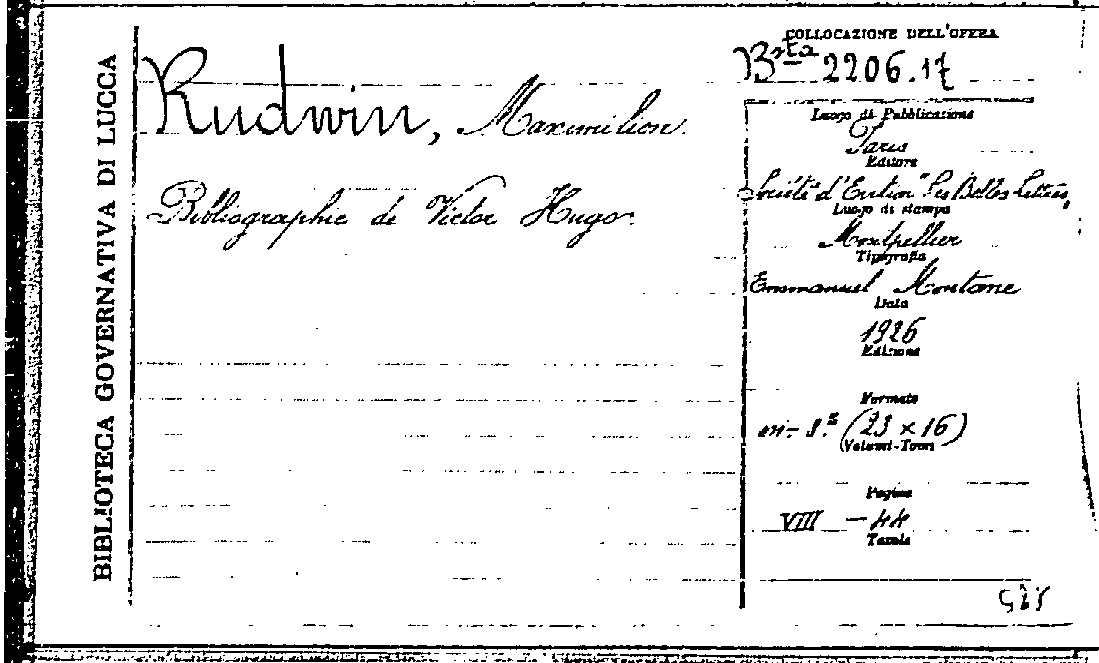 BIBLIOTECA GOVERNATIVA DI LUCCA
Rudwin, Maximilien.
Bibliographie de Victor Hugo.
COLLOCAZIONE DELL'OPERA
Bsta 2206.17
Luogo di Pubblicazione
Paris
Editore
Société d'Edition "Les Belles Lettres,
Luogo di stampa
Montpellier
Tipografia
Emmanuel Montane
Data
1926
Edizione
Formato
in-8.° (23 x 16)
(Volumi-Tomi
Pagine
VIII - 44
Tavole